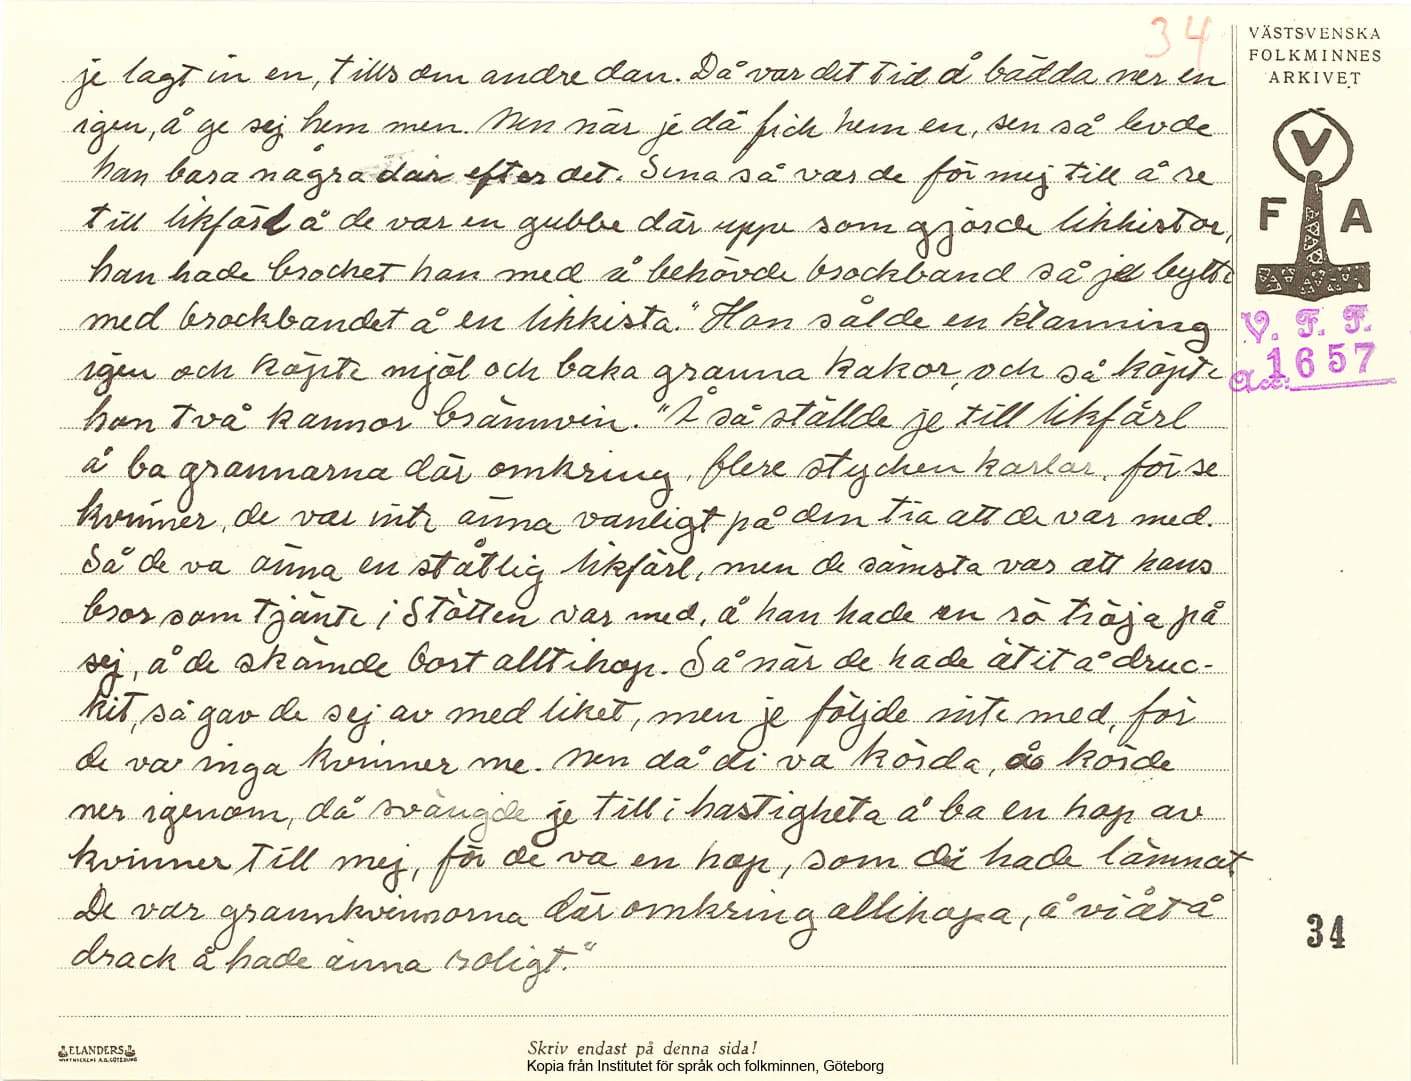 34
VÄSTSVENSKA
FOLKMINNES
ARKIVET
V
F A
V. F. F.
Acc: 1657
je lagt in en, tills om andre dan. Då var det tid å bädda ner en
igen, å ge sej hem men. Men när je då fick hem en, sen så levde
han bara några dar efter det. Sena så var de för mej till å se
till likfärl å de var en gubbe där uppe som gjorde likkistor,
han hade brocket han med å behövde brockband så je bytte
med brockbandet å en likkista." Hon sålde en klänning
igen och köpte mjöl och baka granna kakor, och så köpte
hon två kannor brännvin. "Å så ställde je till likfärl
å ba grannarna där omkring, flere stycken karlar, för se
kvinner, de var inte änna vanligt på den tia att de var med.
Så de va änna en ståtlig likfärl, men de sämsta var att hans
bror som tjänte i Stötten var med, å han hade en rö tröja på
sej, å de skämde bort alltihop. Så när de hade ätit å druc-
kit, så gav de sej av med liket, men je följde inte med, för
de var inga kvinner me. Men då di va körda, å körde
ner igenom, då svängde je till i hastigheta å ba en hop av
kvinner till mej, för de va en hop, som di hade lämnat
De var grannkvinnorna där omkring allihopa, å vi åt å
drack å hade änna roligt."
34
ELANDERS
Skriv endast på denna sida!
Kopia från Institutet för språk och folkminnen, Göteborg